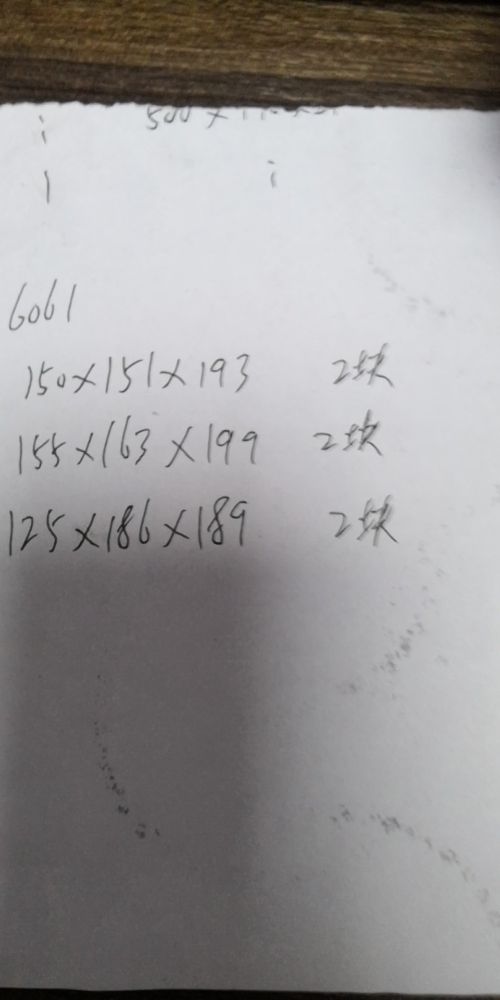 500 ×
6061
150×151×193 2块
155×163×199 2块
125×186×189 2块